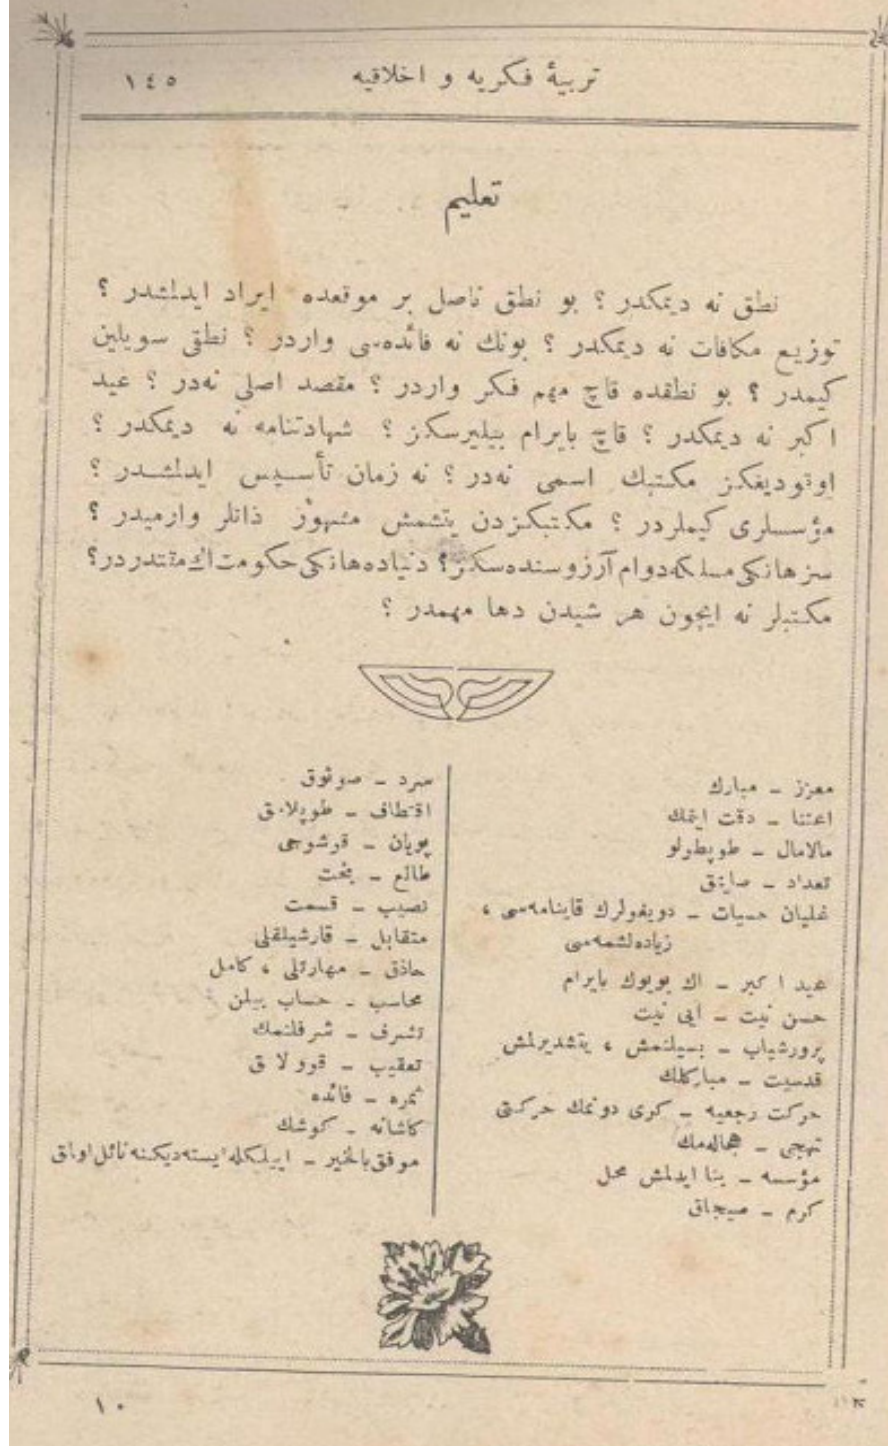 تربیهٔ فكریه و اخلاقیه
١٤٥
تعلیم
نطق نه دیمكدر ؟ بو نطق ناصل بر موقعده ایراد ایدلمشدر ؟
توزیع مكافات نه دیمكدر ؟ بونك نه فائده‌سی واردر ؟ نطقی سویلین
كیمدر ؟ بو نطقده قاچ مهم فكر واردر ؟ مقصد اصلی نه‌در ؟ عید
اكبر نه دیمكدر ؟ قاچ بایرام بیلیرسكز ؟ شهادتنامه نه دیمكدر ؟
اوقودیغكز مكتبك اسمی نه‌در ؟ نه زمان تأسیس ایدلمشدر ؟
مؤسسلری كیملردر ؟ مكتبكزدن یتشمش مشهور ذاتلر وارمیدر ؟
سز هانكی مسلكه دوام آرزوسنده‌سكز ؟ دنیاده هانكی حكومت اك مقتدردر ؟
مكتبلر نه ایچون هر شیدن دها مهمدر ؟
معزز – مبارك
اعتنا – دقت ایتمك
مالامال – طوپطولو
تعداد – صایمق
غلیان حسیات – دویغولرك قاینامه‌سی ،
زیاده‌لشمه‌سی
عید اكبر – اك بویوك بایرام
حسن نیت – ایی نیت
پرورشیاب – بسیلنمش ، یتشدیرلمش
قدسیت – مباركلك
حركت رجعیه – كری دونمك حركتی
تهجی – هجاله‌مك
مؤسسه – بنا ایدلمش محل
كرم – صیجاق
سرد – صوئوق
اقتطاف – طوپلامق
پویان – قوشوجی
طالع – بخت
نصیب – قسمت
متقابل – قارشیلقلی
حاذق – مهارتلی ، كامل
محاسب – حساب بیلن
تشرف – شرفلنمك
تعقیب – قوولامق
ثمره – فائده
كاشانه – كوشك
موفق بالخیر – اییلكله ایسته‌دیكنه نائل اولمق
١٠